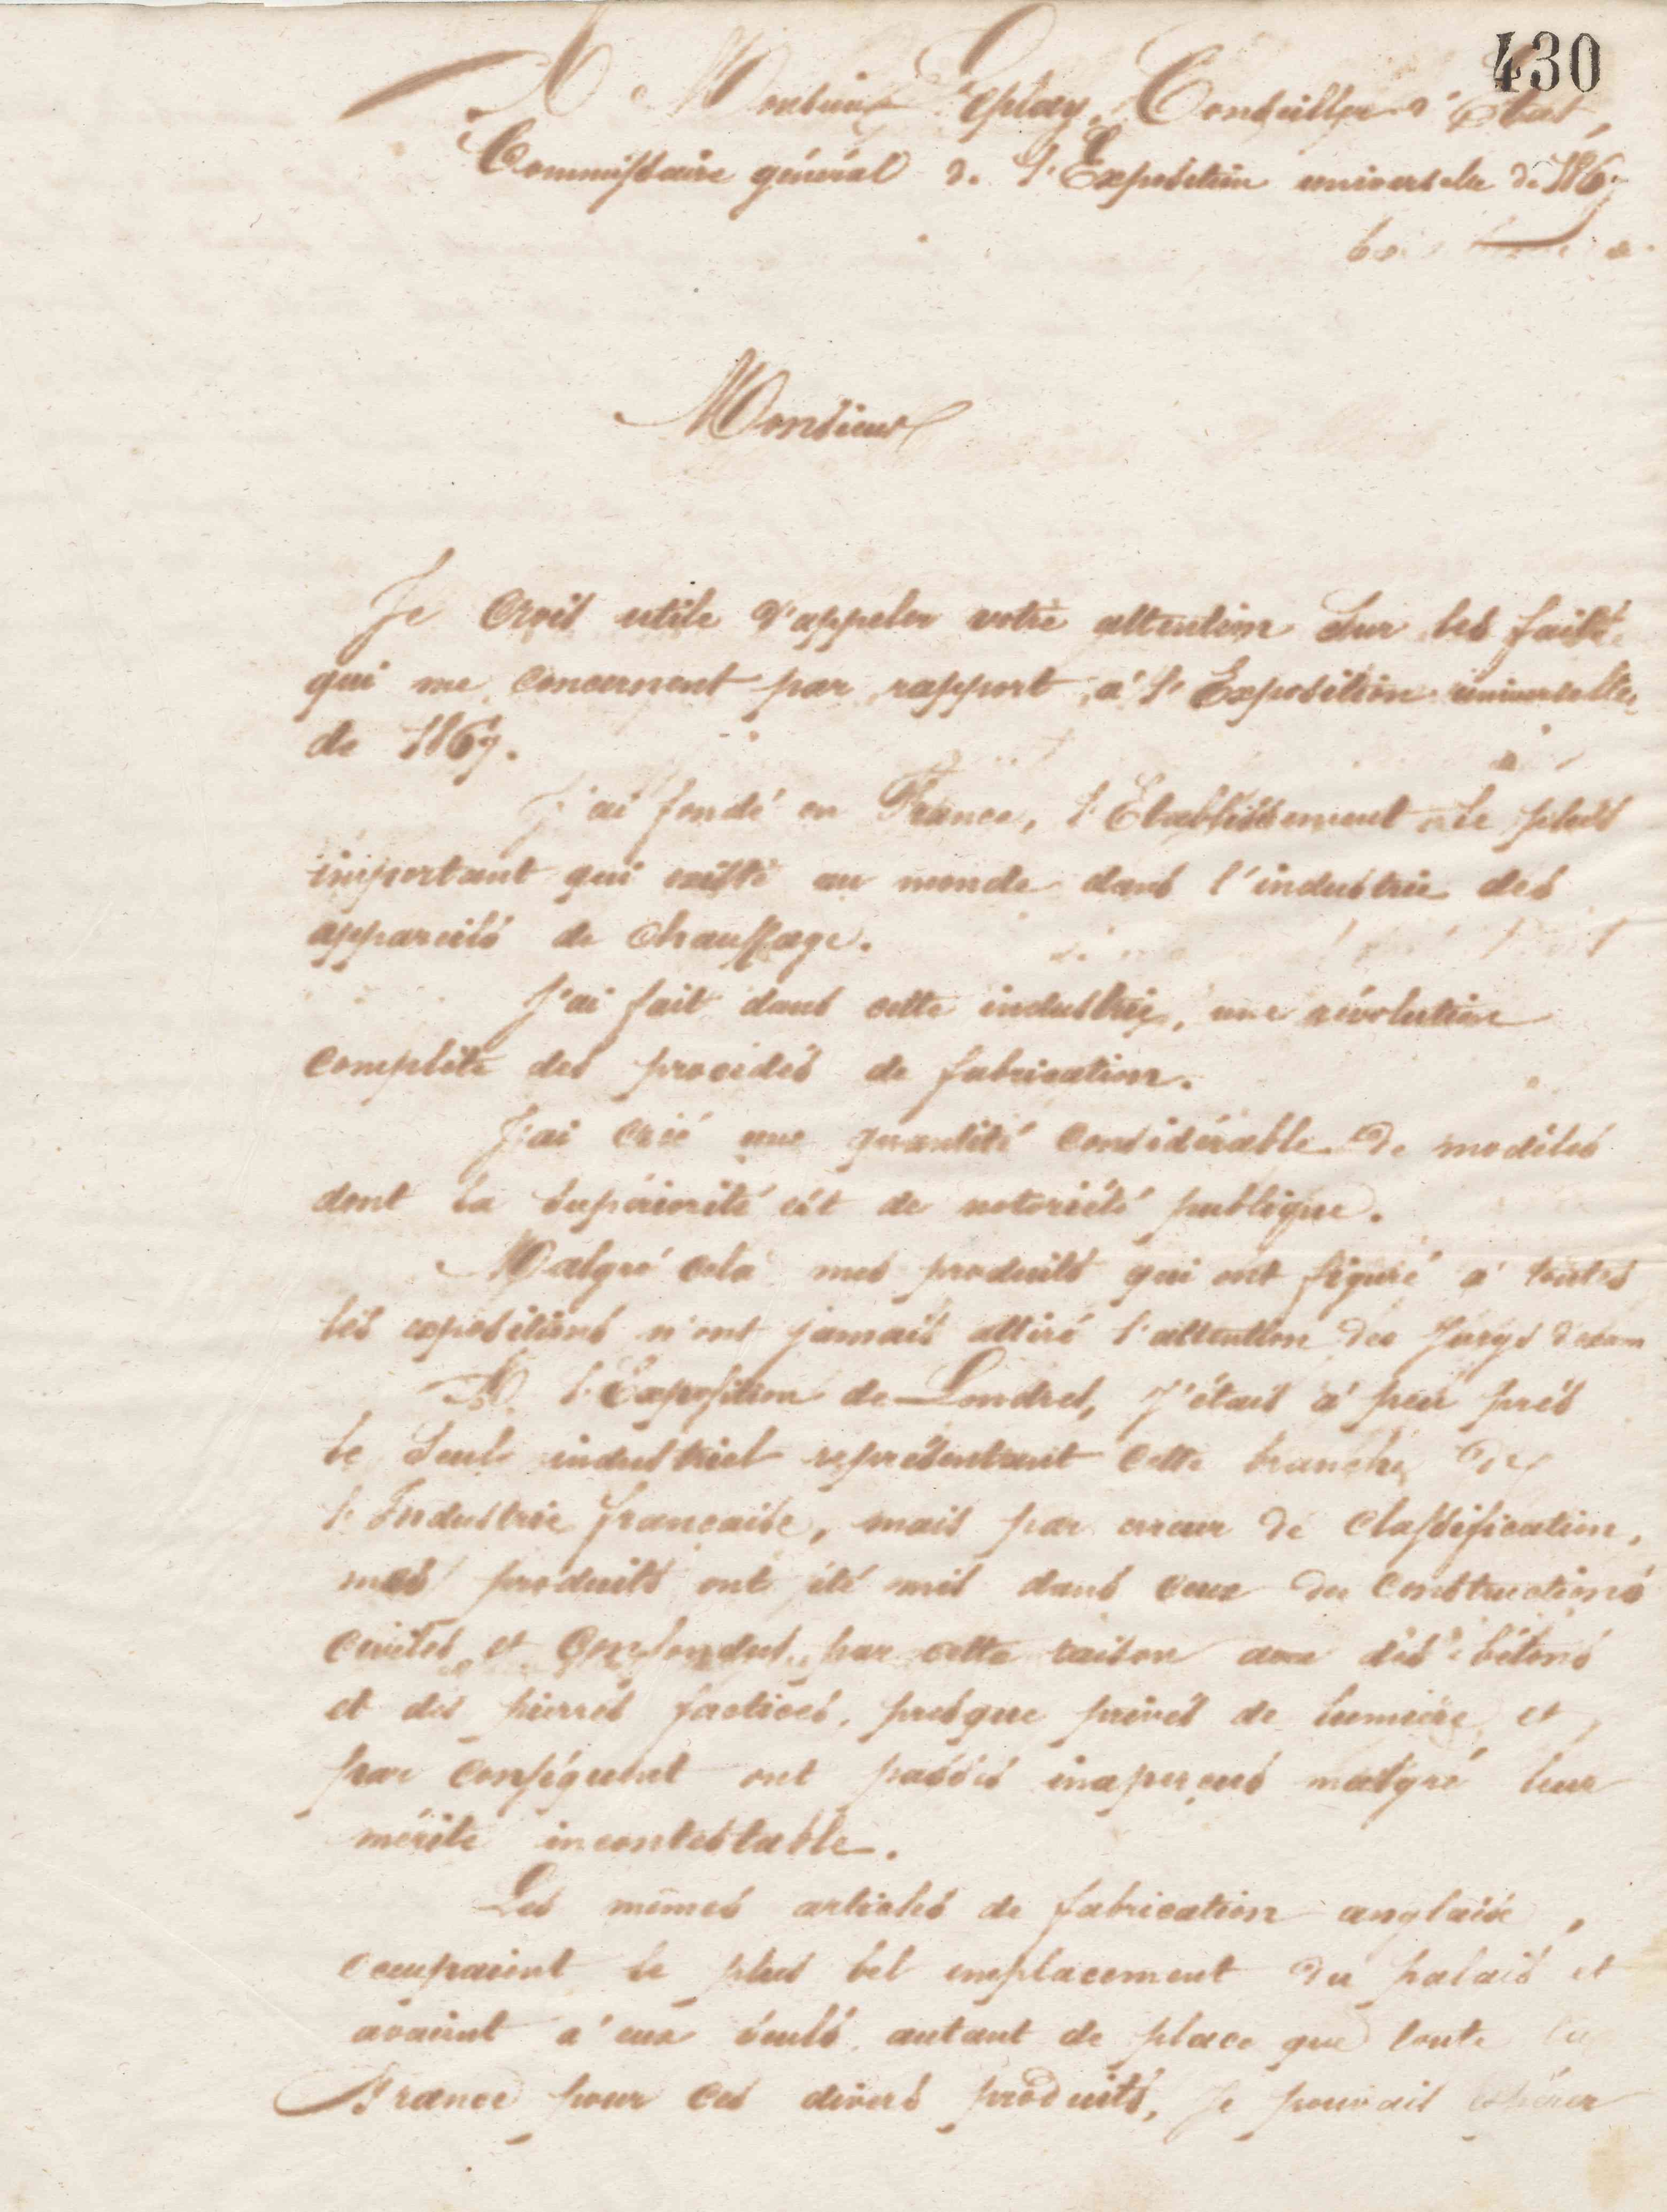 430
A Monsieur Leplay, Conseiller d'Etat,
Commissaire général de l'Exposition universelle de 1867
Monsieur
Je Crois utile d'appeler votre attention sur les faits
qui me concernent par rapport à l'Exposition universelle
de 1867.
J'ai fondé en France, l'Etablissement le plus
important qui existe au monde dans l'industrie des
appareils de chauffage.
J'ai fait dans cette industrie, une révolution
complète des procédés de fabrication.
J'ai créé une quantité considérable de modèles
dont la supériorité est de notoriété publique.
Malgré cela mes produits qui ont figuré à toutes
les expositions n'ont jamais attiré l'attention des Jurys d'exam
A l'Exposition de Londres, j'étais à peu près
le seul industriel représentant cette branche de
l'Industrie française, mais par erreur de classification,
mes produits ont été mis dans ceux des constructions
civiles et confondus par cette raison avec des bétons
et des pierres factices, presque privés de lumière et
par conséquent ont passés inaperçus malgré leur
mérite incontestable.
Les mêmes articles de fabrication anglaise,
occupaient le plus bel emplacement du palais et
avaient à eux seuls, autant de place que toute la
France pour ces divers produits, je pouvais espérer